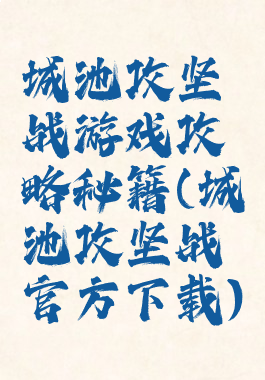 城池攻坚
战游戏攻
略秘籍(城
池攻坚战
官方下载)